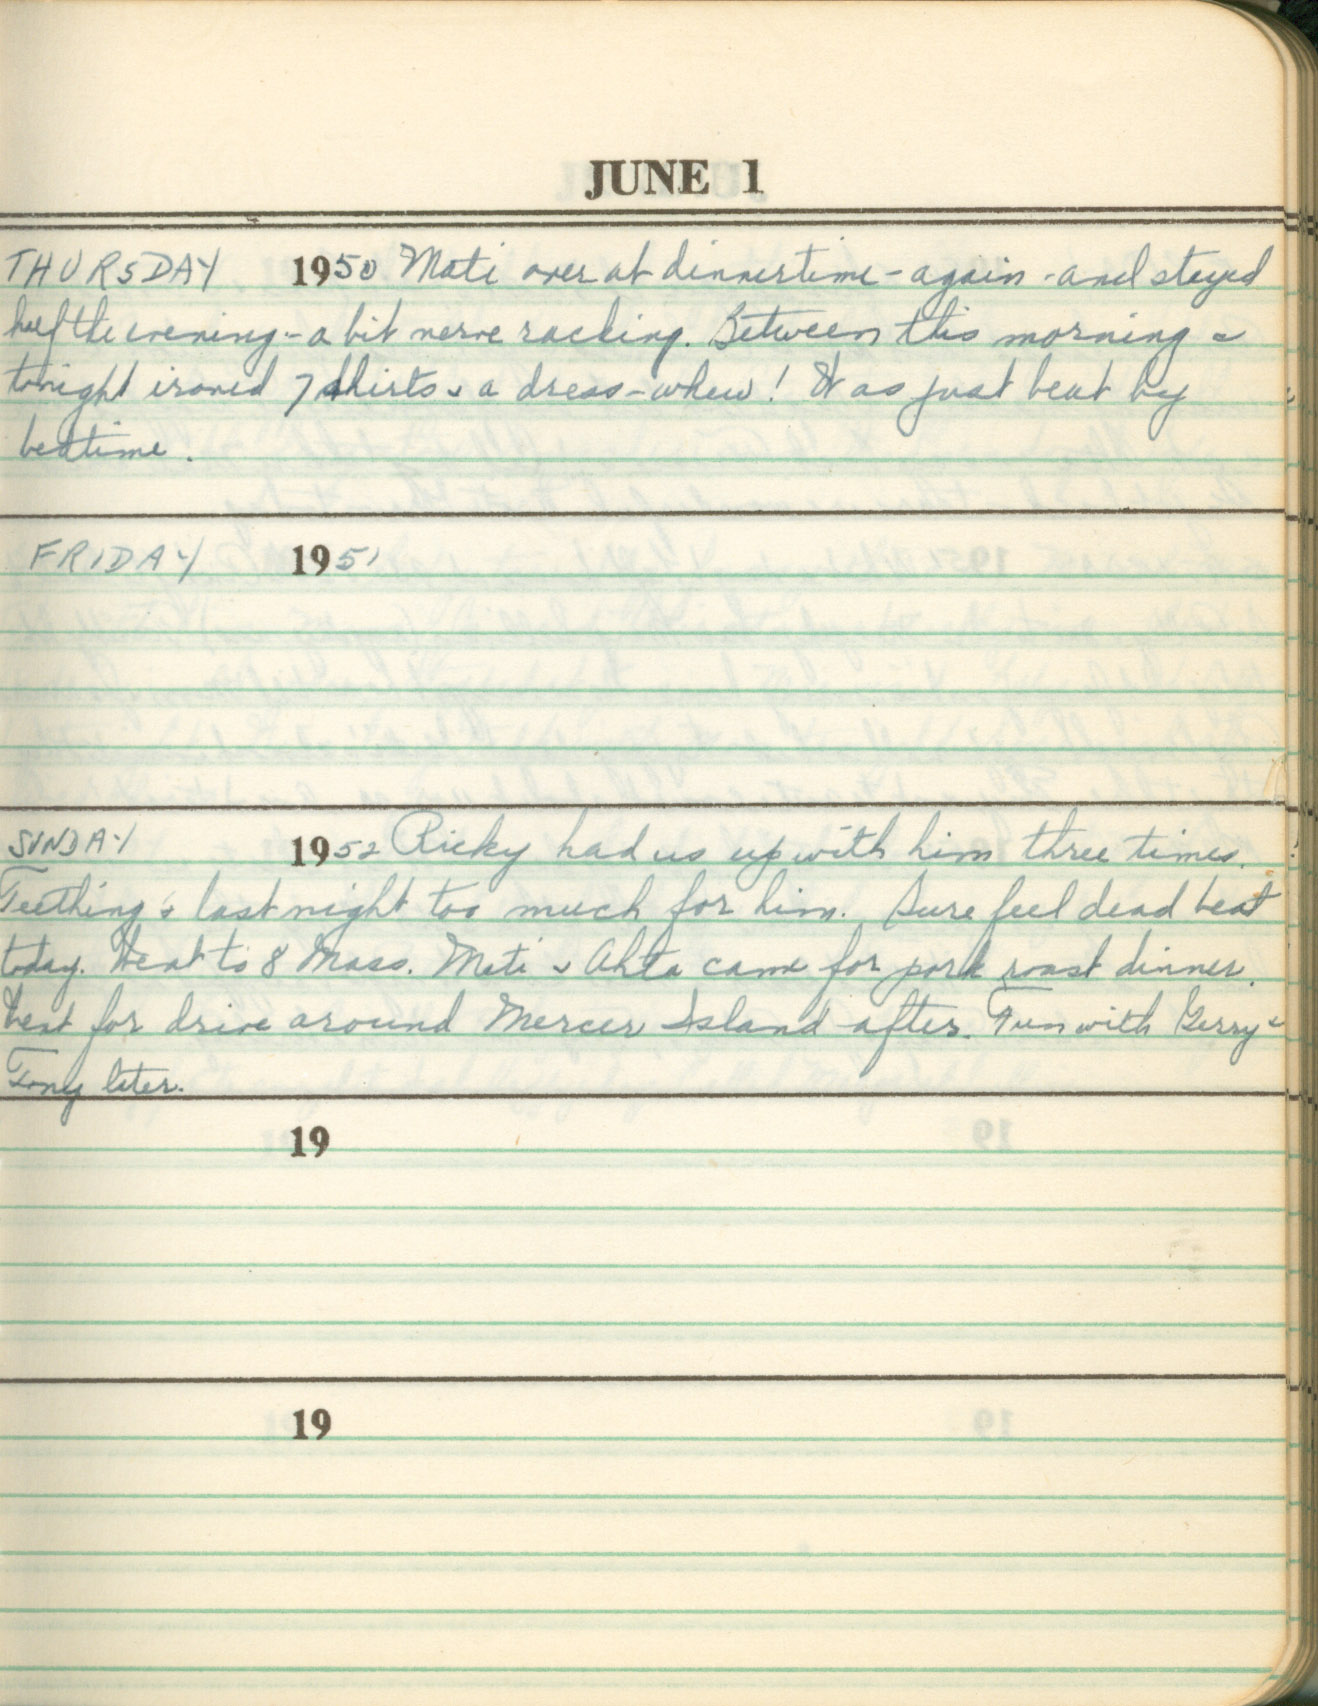 JUNE 1
THURSDAY 1950 Mati over at dinnertime - again - and stayed
half the evening - a bit nerve racking. Between this morning &
tonight ironed 7 shirts & a dress - whew! Was just beat by
bedtime.
FRIDAY 1951
SUNDAY 1952 Ricky had us up with him three times.
Teething & last night too much for him. Sure feel dead beat
today. Went to 8 Mass. Mati & Ahta came for pork roast dinner.
Went for drive around Mercer Island after. Fun with Gerry &
Tony later.
19
19